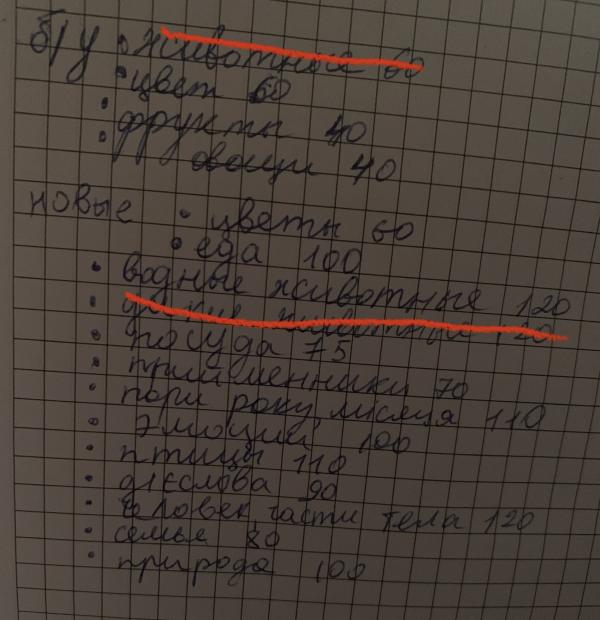 б/у • животные 60
• цвет 60
• фрукты 40
• овощи 40
новые • цветы 60
• еда 100
• водные животные 120
• дикие животные 120
• посуда 75
• прийменники 70
• пори року, місяця 110
• эмоции 100
• птицы 110
• дієслова 90
• человек, части тела 120
• семья 80
• природа 100